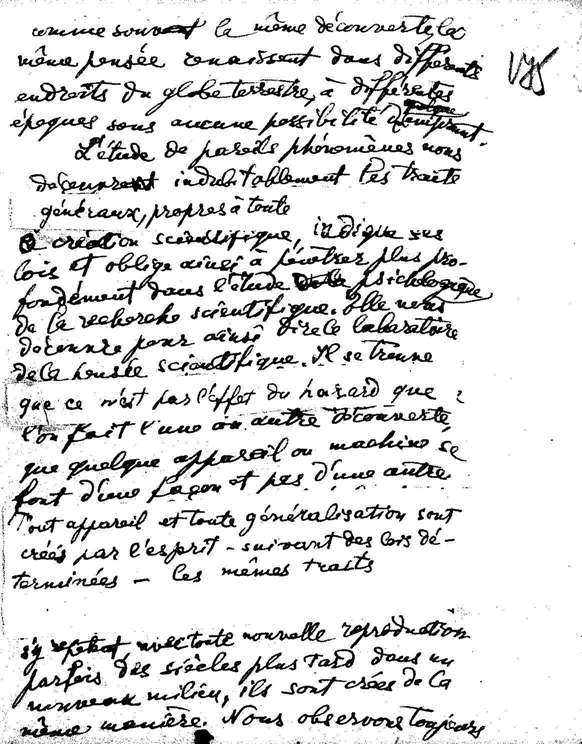 comme souvent la même découverte, la
même pensée renaissent dans différents
endroits du globe terrestre, à différentes
époques sans aucune possibilité quelque d'emprunt.
L'étude de pareils phénomènes nous
découvrent indubitablement les traits
généraux, propres à toute
création scientifique, indique ses
lois et oblige ainsi à pénétrer plus pro-
fondément dans l'étude psichologique
de la recherche scientifique. Elle nous
découvre pour ainsi dire le laboratoire
de la pensée scientifique. Il se trouve
que ce n'est par l'effet du hazard que
l'on fait l'une ou autre découverte,
que quelque appareil ou machine se
font d'une façon et pas d'une autre
Tout appareil et toute généralisation sont
créés par l'esprit - suivant des lois dé-
terminées - les mêmes traits
s'y repetent avec toute nouvelle reproduction
parfois des siècles plus tard dans un
nouveau milieu, ils sont créés de la
même manière. Nous observons toujours